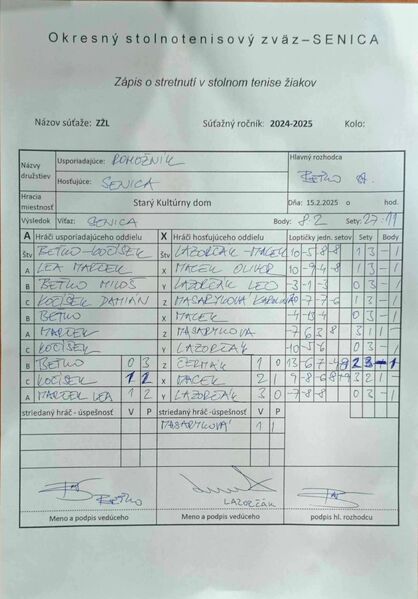 Okresný stolnotenisový zväz–SENICA
Zápis o stretnutí v stolnom tenise žiakov
Názov súťaže: ZŽL Súťažný ročník: 2024-2025 Kolo:
Názvy družstiev Usporiadajúce: ROHOŽNÍK Hlavný rozhodca
Hosťujúce: SENICA BEŤKO
Hracia miestnosť Starý Kultúrny dom Dňa: 15.2.2025 o hod.
Výsledok Víťaz: SENICA Body: 8:2 Sety: 27:11
A Hráči usporiadajúceho oddielu X Hráči hosťujúceho oddielu Loptičky jedn. setov Sety Body
Štv BEŤKO-KOČÍŠEK Štv LAZORČÁK-MACEK 10 -5 -8 -8 1 3 - 1
A LEA MARZEK X MACEK OLIVER -10 -9 4 -8 1 3 - 1
B BEŤKO MILOŠ Y LAZORČÁK LEO -3 -1 -3 0 3 - 1
C KOČÍŠEK DAMIÁN Z MASARYKOVÁ 1 3 - 1
B BEŤKO X MACEK 0 3 - 1
A MARZEK Z MASARYKOVÁ -7 6 3 8 3 1 1 -
C KOČÍŠEK Y LAZORČÁK -10 -5 -6 0 3 - 1
B BEŤKO 0 3 Z ČERMAK 1 0 2 3 - 1
C KOČÍŠEK 1 2 X MACEK 2 1 3 2 1 -
A MARZEK LEA 1 2 Y LAZORČÁK 3 0 -7 -8 -8 0 3 - 1
striedaný hráč -úspešnosť V P striedaný hráč -úspešnosť V P
MASARYKOVÁ 1 1
BEŤKO LAZORČÁK
Meno a podpis vedúceho Meno a podpis vedúceho podpis hl. rozhodcu